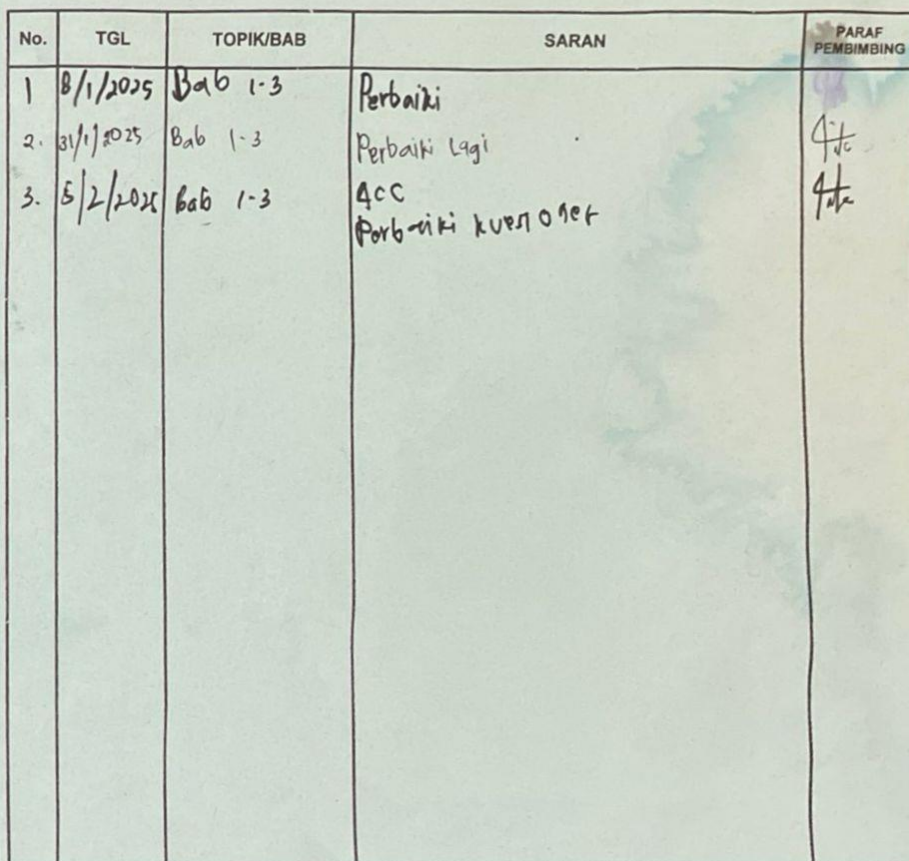 No. TGL TOPIK/BAB SARAN PARAF PEMBIMBING
1 8/1/2025 Bab 1-3 Perbaiki
2. 31/1/2025 Bab 1-3 Perbaiki Lagi
3. 5/2/2025 Bab 1-3 ACC
Perbaiki kuesioner